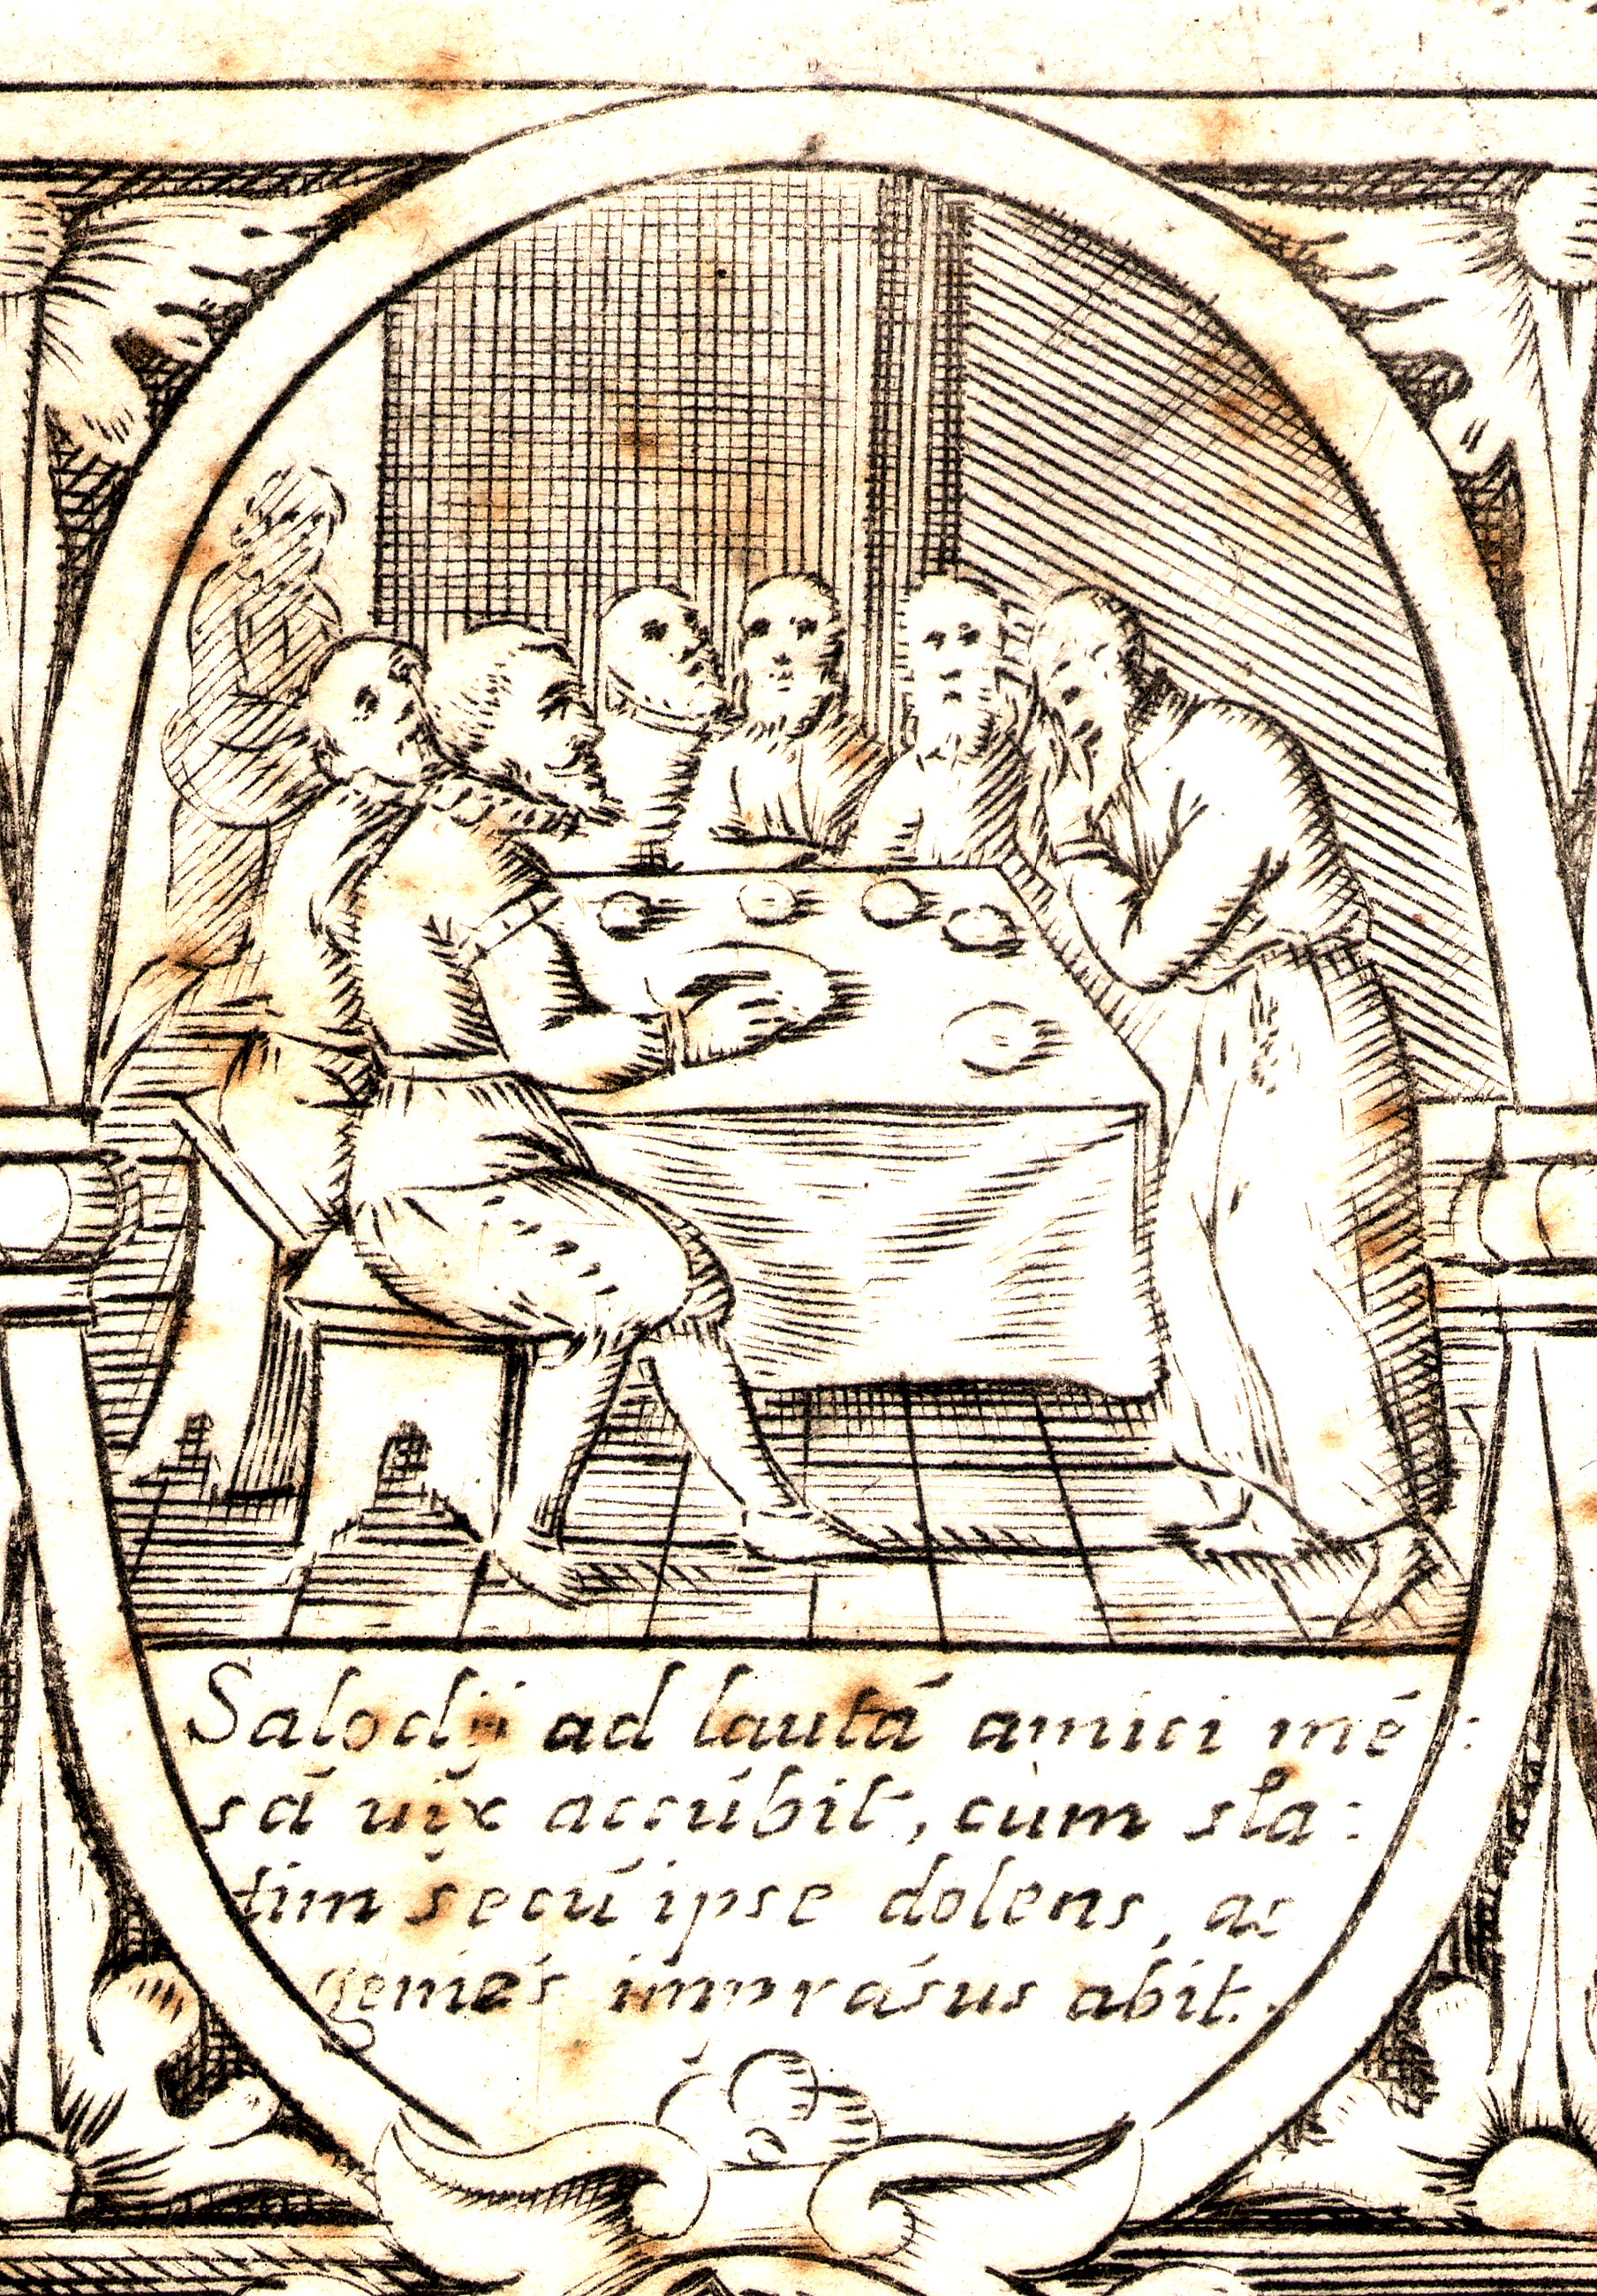 Salodÿ ad lautá amici mé:
sá uix accúbit, cùm sta:
tim secú ipse dolens, ac
gemés imprásus abit.